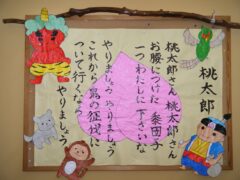 桃太郎
桃太郎さん 桃太郎さん
お腰につけた 黍団子
一つわたしに 下さいな
やりましょう やりましょう
これから 鬼の征伐に
ついて行くなら
やりましょう